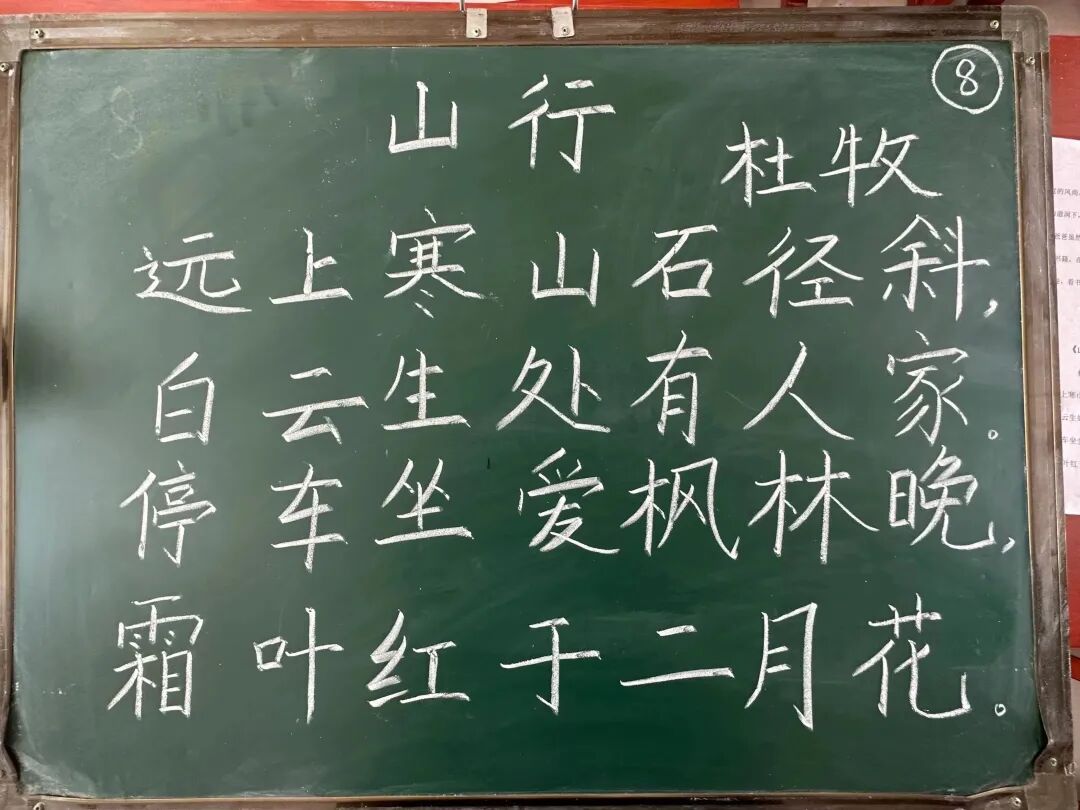 ⑧
山行
杜牧
远上寒山石径斜,
白云生处有人家。
停车坐爱枫林晚,
霜叶红于二月花。